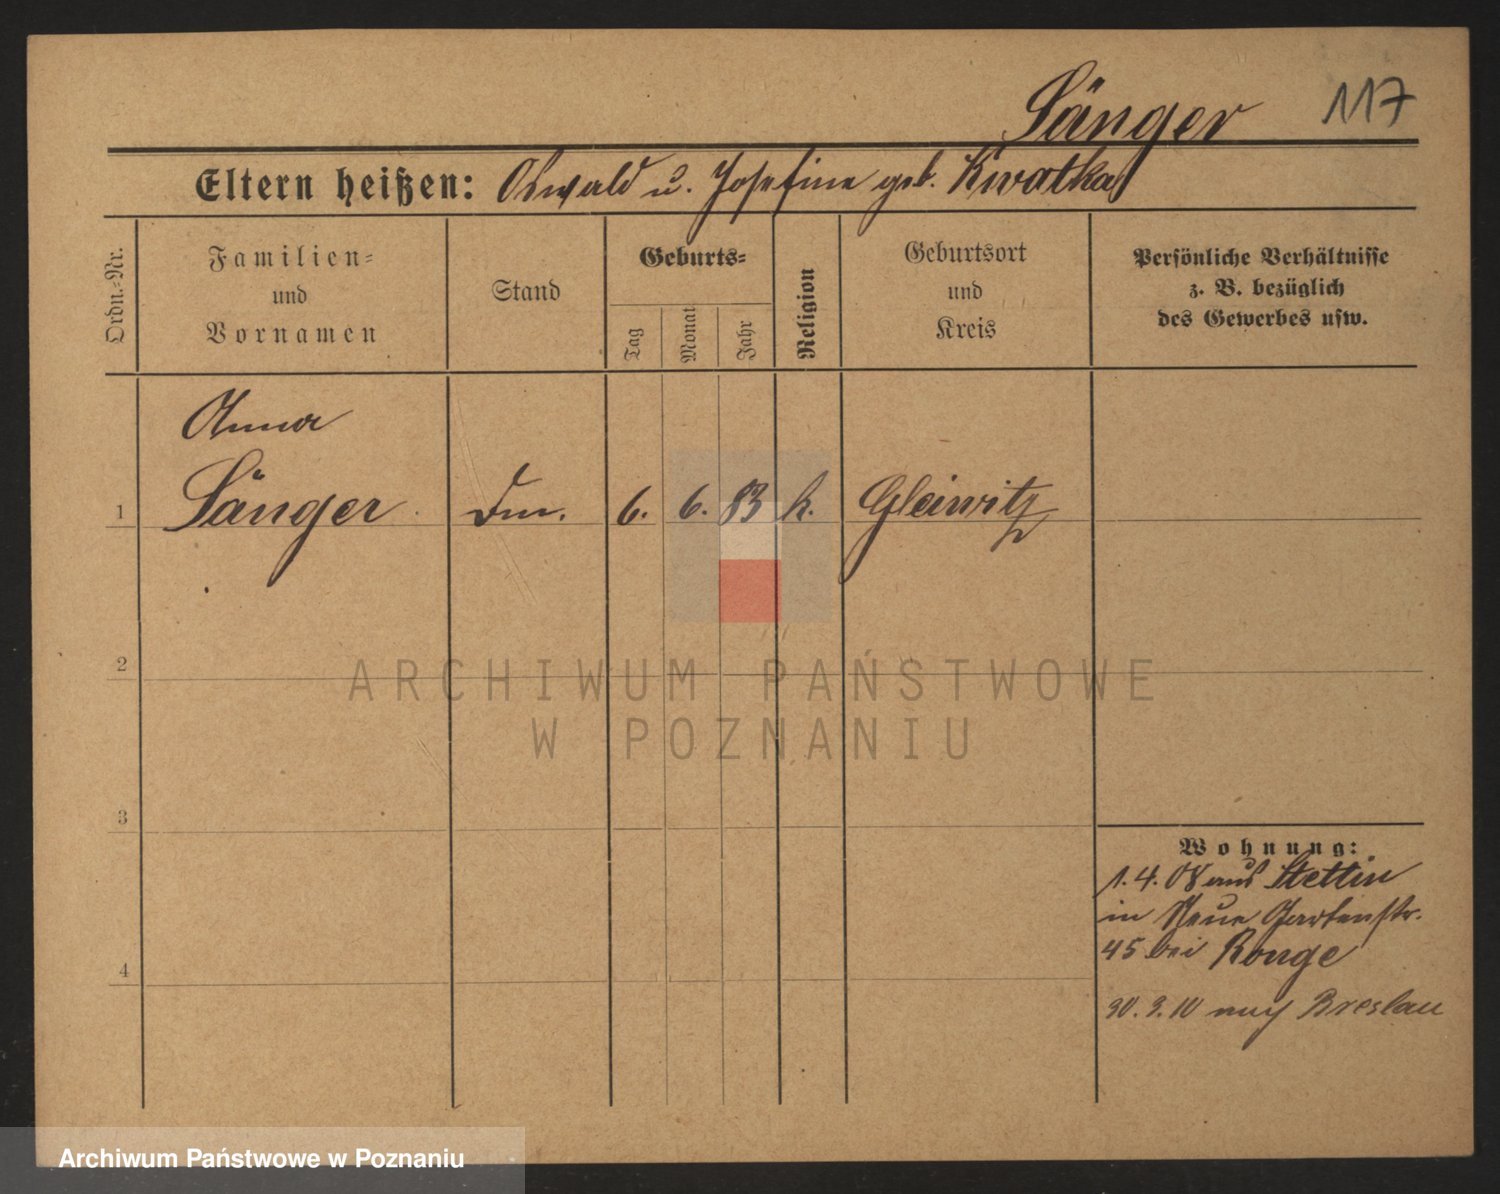 Sänger 117
Eltern heißen: Oswald u. Josefine geb. Kwatka
Ordn.-Nr.
Familien-
und
Vornamen
Stand
Geburts-
Tag
Monat
Jahr
Religion
Geburtsort
und
Kreis
Persönliche Verhältnisse
z. B. bezüglich
des Gewerbes usw.
Anna
1 Sänger 6. 6. 83 k. Gleiwitz
2
3
4
Wohnung:
1.4.08 aus Stettin
in Neue Gartenstr.
45 bei Ronge
30.3.10 nach Breslau
ARCHIWUM PAŃSTWOWE
W POZNANIU
Archiwum Państwowe w Poznaniu